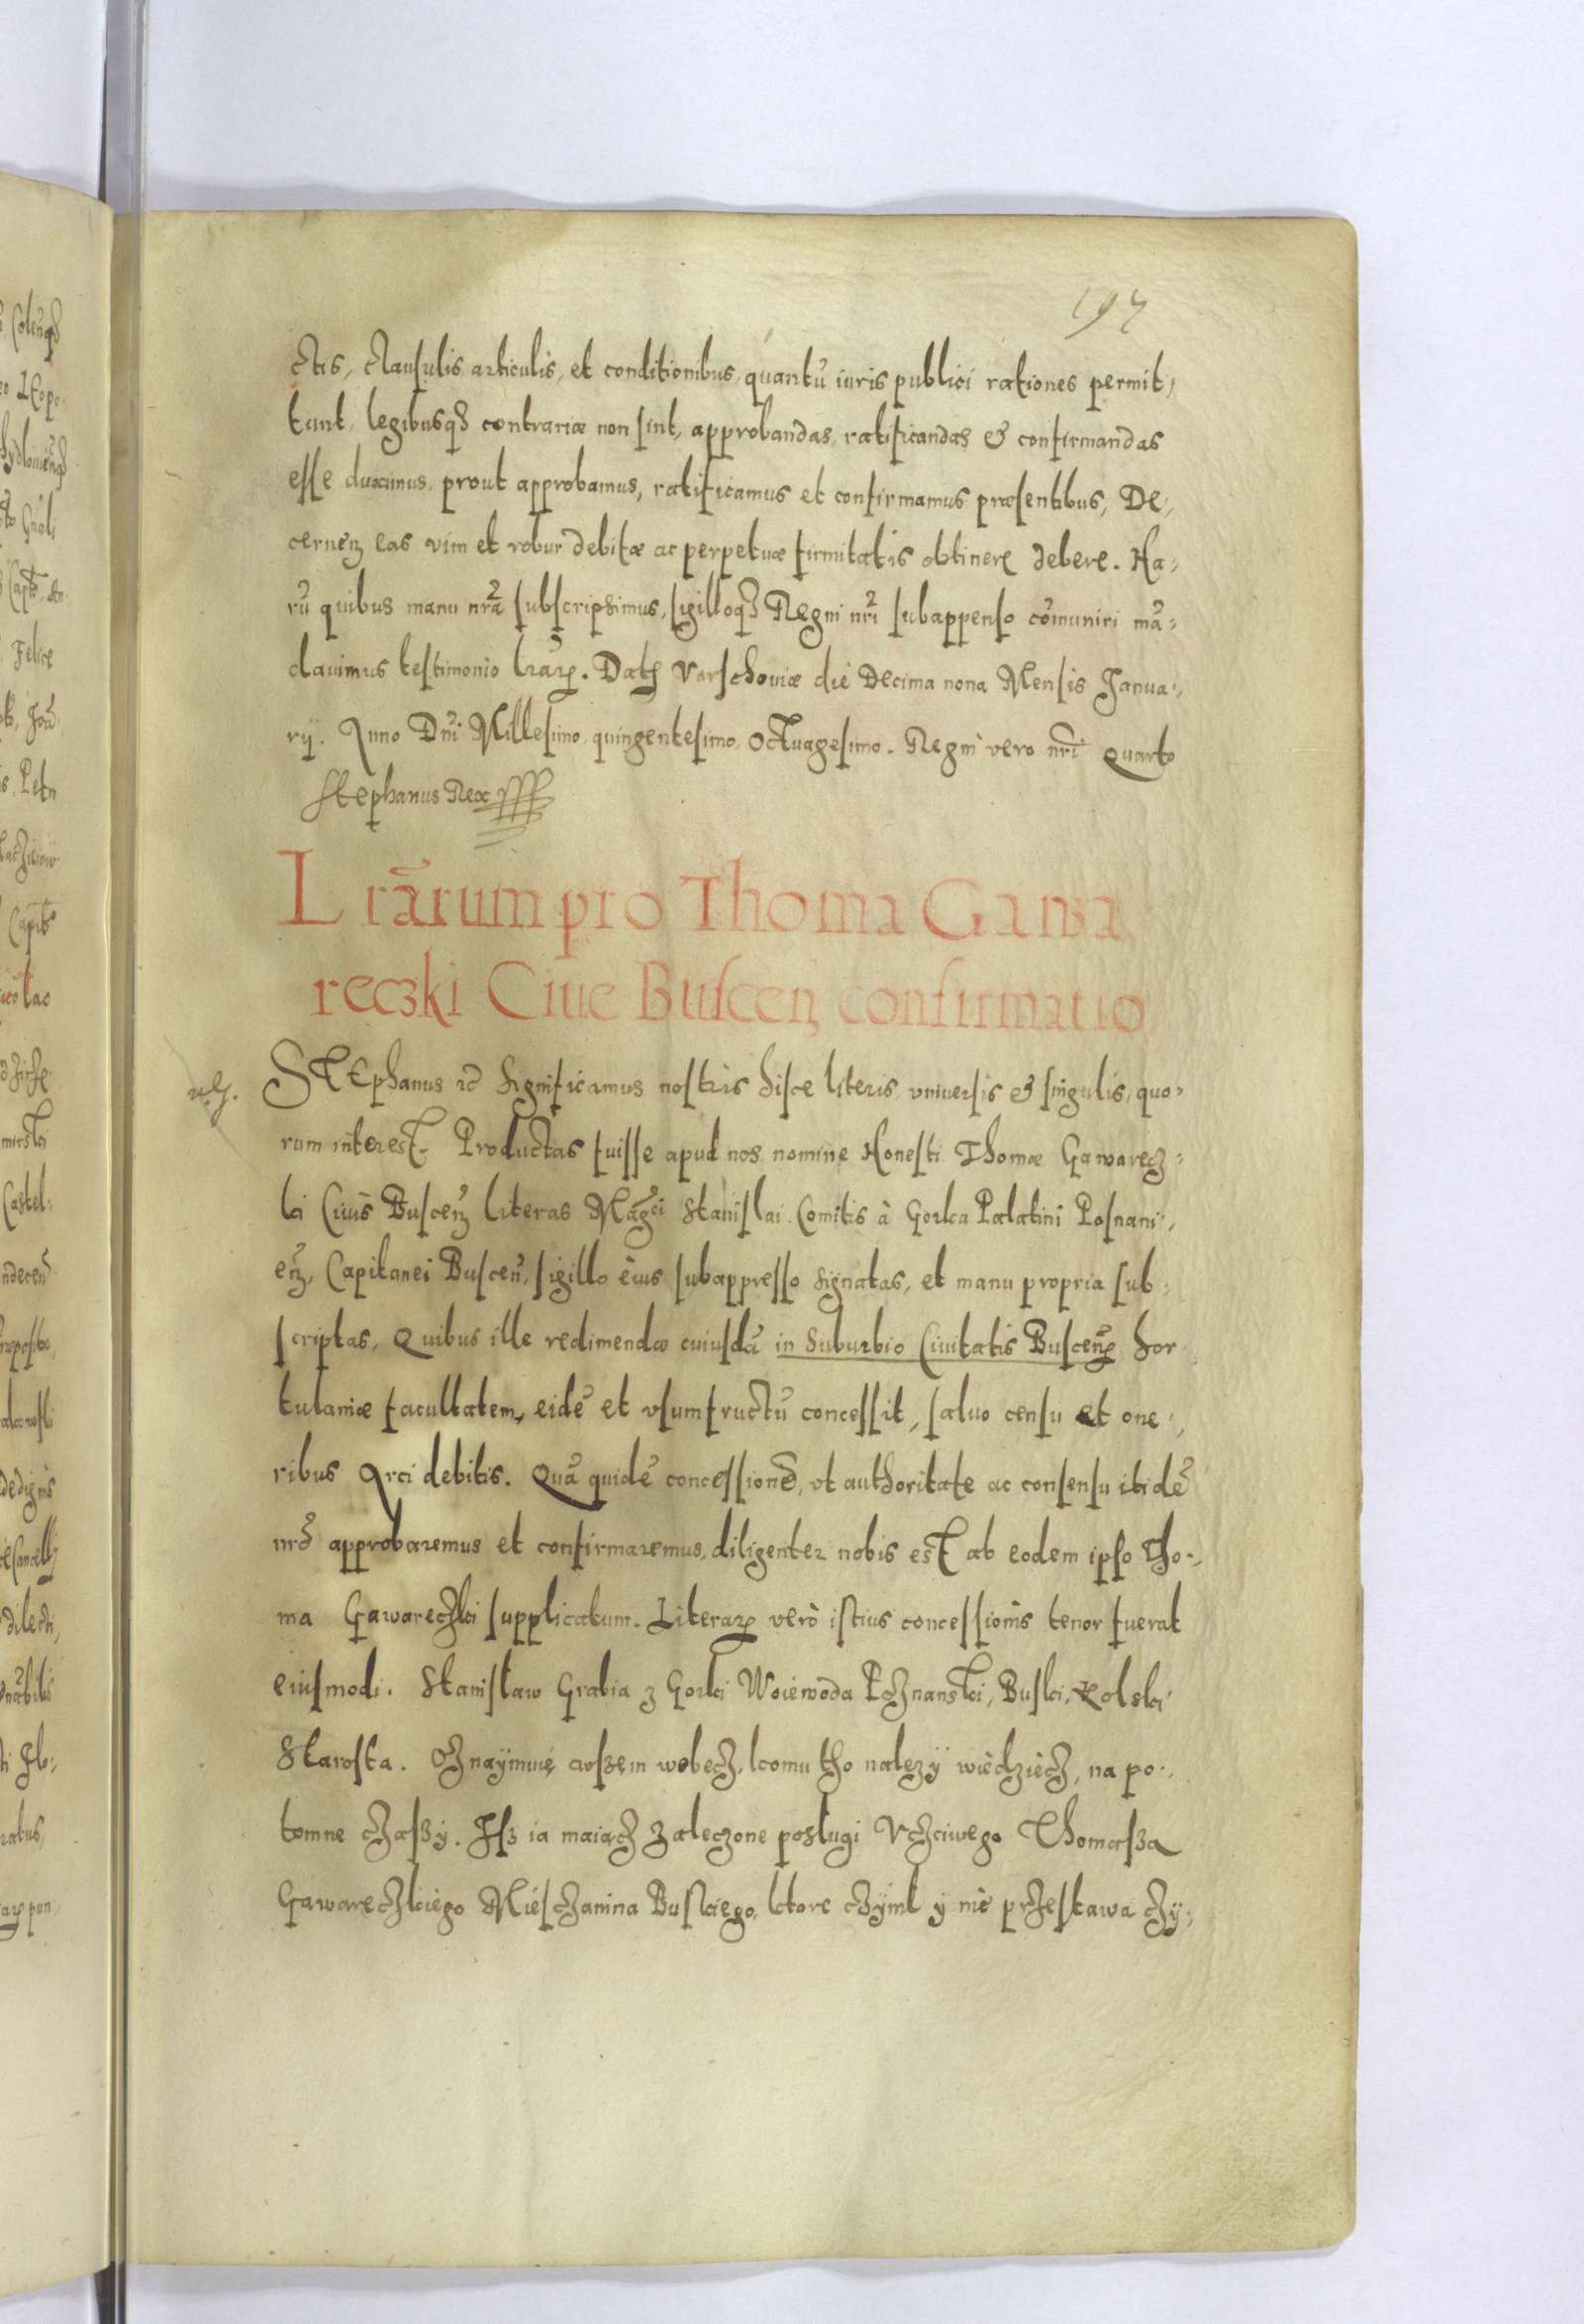 197
ctis, clausulis, articulis, et conditionibus, quantũ iuris publici rationes permit,
tunt, legibusq3 contrariæ non sint, approbandas, ratificandas & confirmandas
esse duximus, prout approbamus, ratificamus et confirmamus præsentibus, De,
cernen̄ eas vim et robur debitæ ac perpetuæ firmitatis obtinere debere. Ha,
rũ quibus manu nrã subscripsimus, sigilloq3 Regni nrĩ subappenso cõmuniri mã,
davimus testimonio lrãrꝝ. Datꝭ Varschoviæ die Decima nona Mensis Janua,
rij. Anno Dnĩ Millesimo, quingentesimo, Octuagesimo. Regni vero nrĩ Quarto
Stephanus Rex
Lrãrum pro Thoma Gawa
reczki Ciue Buscen̄ confirmatio
Stephanus &c̃ Significamus nostris hisce literis vniuersis & singulis, quo,
rum interest. Productas fuisse apud nos nomine Honesti Thomæ Gawarecz,
ki Ciuis Buscen̄ literas Mag̃ci Stanislai Comitis à Gorka Palatini Posnani,
en̄, Capitanei Buscen̄, sigillo eius subappresso signatas, et manu propria sub,
scriptas, Quibus ille redimendæ cuiusdã in Suburbio Ciuitatis Buscen̄ hor
tulaniæ facultatem, eidẽ et vsumfructũ concessit, saluo censu et one,
ribus Arci debitis. Quã quidẽ concessionẽ, vt authoritate ac consensu itidẽ
nrõ approbaremus et confirmaremus, diligenter nobis est ab eodem ipso Tho,
ma Gawareczki supplicatum. Literarꝝ verò istius concessionis tenor fuerat
eiusmodi. Stanisław Grabia z Gorki Woiewoda Poznanski, Buski, Kolski
Starosta. Oznaÿmuię wszem wobecz, komu tho nalezÿ wiedziecz, na po,
tomne czaszÿ. Jsz ia maiącz zaleczone poslugi Vczciwego Thomasza
Gawareczkiego Miesczanina Buskiego, ktore czÿnil ÿ nie przestawa czÿ,